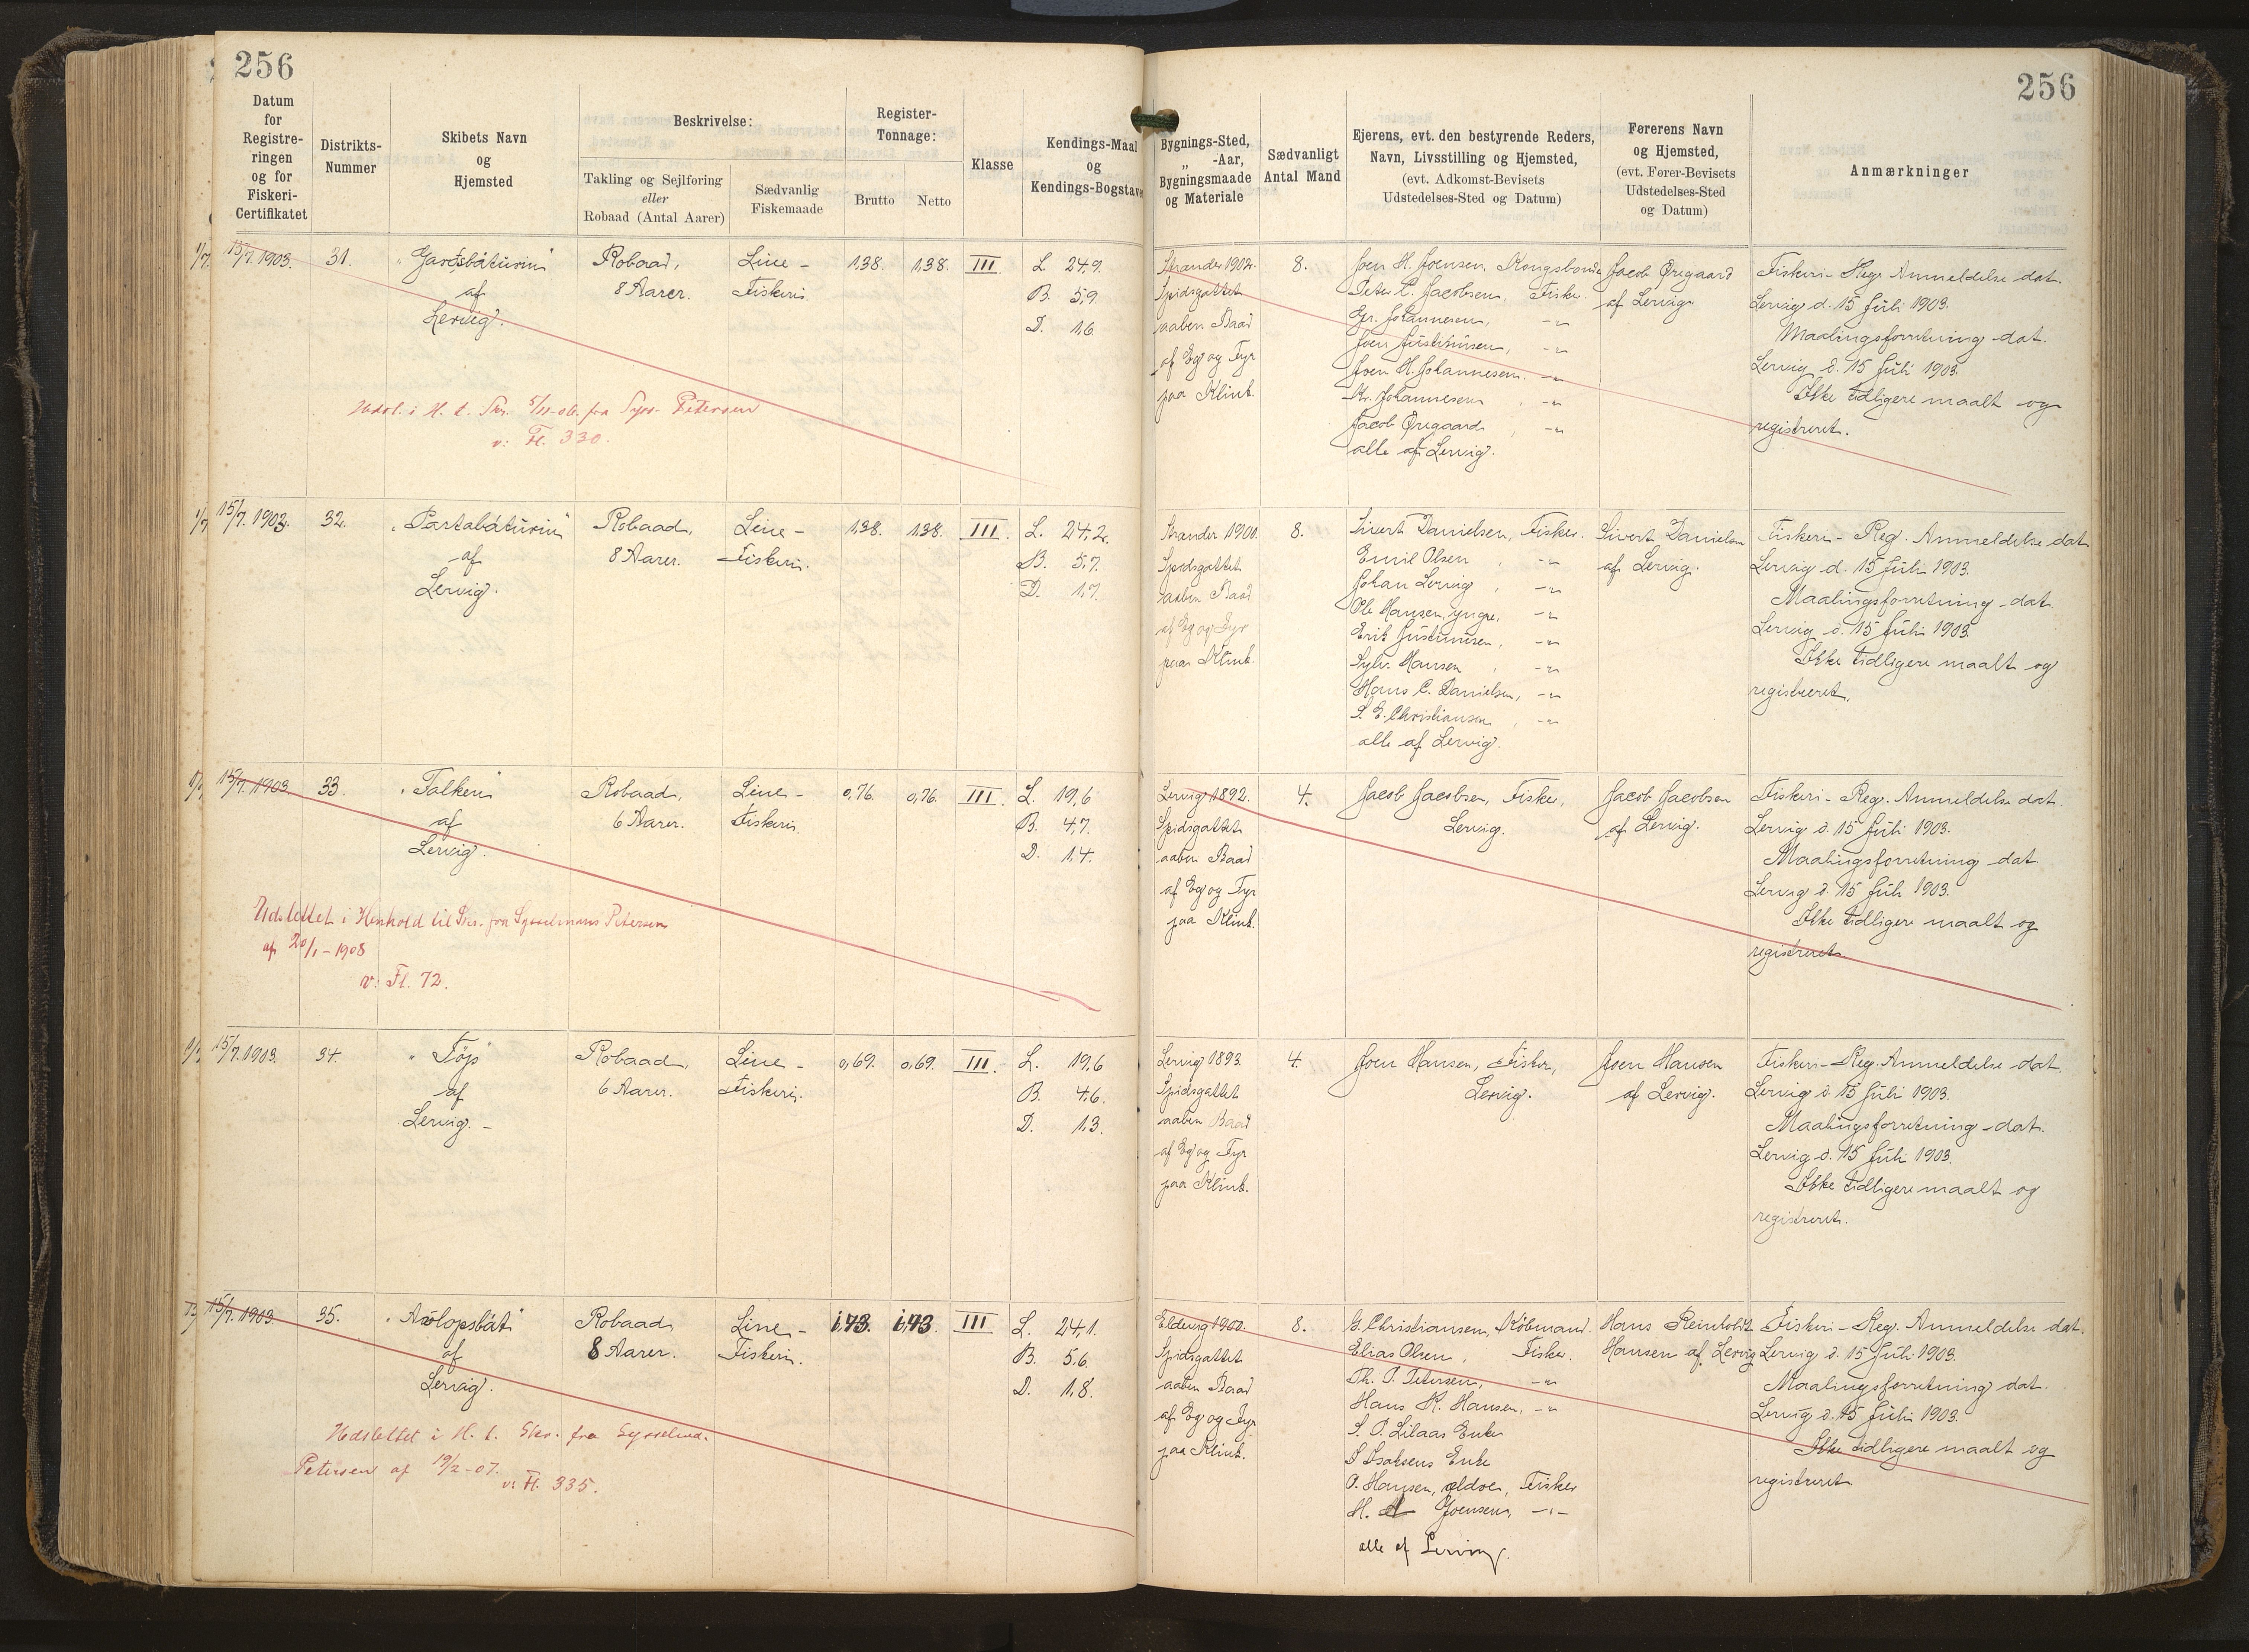 256
256
Datum
for
Registre-
ringen
og for
Fiskeri-
Certifikatet
Distrikts-
Nummer
Skibets Navn
og
Hjemsted
Beskrivelse:
Takling og Sejlføring
eller
Robaad (Antal Aarer)
Sædvanlig
Fiskemaade
Register-
Tonnage:
Brutto
Netto
Klasse
Kendings-Maal
og
Kendings-Bogstaver
Bygnings-Sted,
„ -Aar,
Bygningsmaade
og Materiale
Sædvanligt
Antal Mand
Ejerens, evt. den bestyrende Reders,
Navn, Livsstilling og Hjemsted,
(evt. Adkomst-Bevisets
Udstedelses-Sted og Datum)
Førerens Navn
og Hjemsted,
(evt. Fører-Bevisets
Udstedelses-Sted
og Datum)
Anmærkninger
15/7. 1903.
31.
af
Lervig.
Robaad,
8 Aarer.
Line-
Fiskeri.
1,38.
1,38.
III
L. 24,9.
B. 5,9.
D. 1,6
Strander 1902.
Spidsgattet
aaben Baad
af Eg og Fyr
paa Klink.
8.
Joen H. Joensen, Kongsbonde
Peter C. Jacobsen, Fisker
Johannesen, -"-
Joen Justinusen, -"-
Joen H. Johannesen. -"-
Kr. Johannesen, -"-
Jacob Øregaard, -"-
alle af Lervig.
Jacob Øregaard
af Lervig
Fiskeri-Reg. Anmeldelse dat.
Lervig d. 15 Juli 1903.
Maalingsforretning dat.
Lervig d. 15 Juli 1903.
Ikke tidligere maalt og
registreret.
Udsl. i H. t. Skr. 5/11-06. fra Syss. Petersen
v: Fl. 330.
15/7. 1903.
32.
"Partabáturin"
af
Lervig.
Robaad,
8 Aarer.
Line-
Fiskeri.
1,38.
1,38.
III.
L. 24,2.
B. 5,7.
D. 1,7.
Strander 1900.
Spidsgattet
aaben Baad
af Eg og Fyr
paa Klink.
8.
Sivert Danielsen, Fisker.
Emil Olsen, -"-
Johan Lervig, -"-
Ole Hansen, yngre, -"-
Erik Justinusen, -"-
Sylv. Hansen, -"-
Hans C. Danielsen, -"-
S. E. Christiansen, -"-
alle af Lervig.
Sivert Danielsen
af Lervig.
Fiskeri-Reg. Anmeldelse dat
Lervig d. 15 Juli 1903.
Maalingsforretning dat.
Lervig d. 15 Juli 1903.
Ikke tidligere maalt og
registreret.
15/7. 1903.
33.
"Falken"
af
Lervig.
Robaad,
6 Aarer.
Line-
Fiskeri.
0,76.
0,76.
III.
L. 19,6
B. 4,7.
D. 1,4.
Lervig 1892.
Spidsgattet
aaben Baad
af Eg og Fyr
paa Klink.
4.
Jacob Jacobsen, Fisker,
Lervig.
Jacob Jacobsen
af Lervig.
Fiskeri-Reg. Anmeldelse dat
Lervig d. 15 Juli 1903.
Maalingsforretning dat.
Lervig d. 15 Juli 1903.
Ikke tidligere maalt og
registreret.
Udslettet i Henhold til Skr. fra Sysselmans Petersen
af 20/1-1908
v: Fl. 72.
15/7. 1903.
34.
af
Lervig. -
Robaad,
6 Aarer.
Line-
Fiskeri.
0,69.
0,69.
III.
L. 19,6
B. 4,6.
D. 1,3.
Lervig 1893.
Spidsgattet
aaben Baad
af Eg og Fyr
paa Klink.
4.
Joen Hansen, Fisker,
Lervig.
Joen Hansen
af Lervig.
Fiskeri-Reg. Anmeldelse dat.
Lervig d. 15 Juli 1903.
Maalingsforretning dat.
Lervig d. 15 Juli 1903.
Ikke tidligere maalt og
registreret.
15/7. 1903.
35.
af
Lervig.
Robaad
8 Aarer.
Line-
Fiskeri.
1,73.
1,73.
III
L. 24,1.
B. 5,6.
D. 1,8.
1900.
Spidsgattet
aaben Baad
af Eg og Fyr
paa Klink.
8.
G. Christiansen, Købmand.
Elias Olsen, Fisker.
Th. P. Petersen, -"-
Hans R. Hansen, -"-
Enke
Enke
O. Hansen, ældre, Fisker
H. Joensen, -"-
alle af Lervig.
Hans Reinholdt
Hansen af Lervig
Fiskeri-Reg. Anmeldelse dat.
Lervig d. 15 Juli 1903.
Maalingsforretning dat.
Lervig d. 15 Juli 1903.
Ikke tidligere maalt og
registreret
Udslettet i H. t. Skr. fra Sysselmd.
Petersen af 19/2-07.
v: Fl. 335.